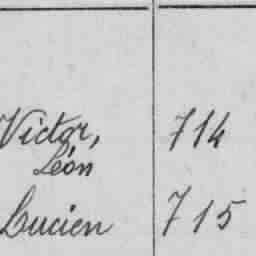 Victor, 714
Léon
Lucien 715